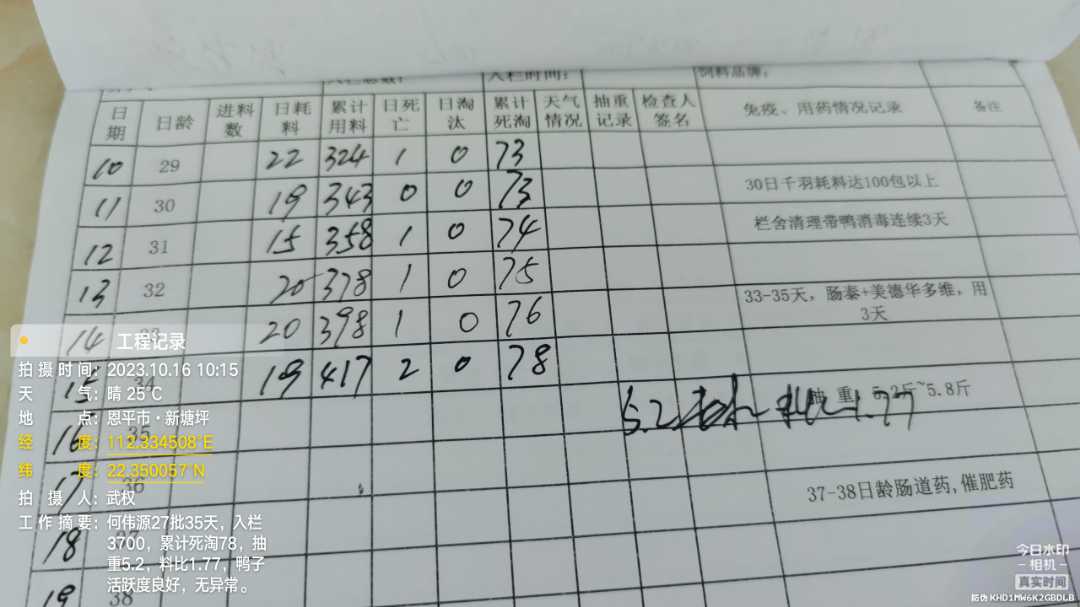 入栏时间： 饲料品牌：
日期 日龄 进料数 日耗料 累计用料 日死亡 日淘汰 累计死淘 天气情况 抽重记录 检查人签名 免疫、用药情况记录 备注
10 29 22 324 1 0 73
11 30 19 343 0 0 73 30日千羽耗料达100包以上
12 31 15 358 1 0 74 栏舍清理带鸭消毒连续3天
13 32 20 378 1 0 75
14 33 20 398 1 0 76 33-35天，肠泰+美德华多维，用3天
15 34 19 417 2 0 78
16 35 抽重 5.2斤~5.8斤
5.2 1.77
17 36 37-38日龄肠道药,催肥药
18
19 38
工程记录
拍摄时间：2023.10.16 10:15
天气：晴 25°C
地点：恩平市·新塘坪
经度：112.334508°E
纬度：22.350057°N
拍摄人：武权
工作摘要：何伟源27批35天，入栏
3700，累计死淘78，抽
重5.2，料比1.77，鸭子
活跃度良好，无异常。
今日水印
-相机-
真实时间
防伪 KHD1MW6K2GBDLB